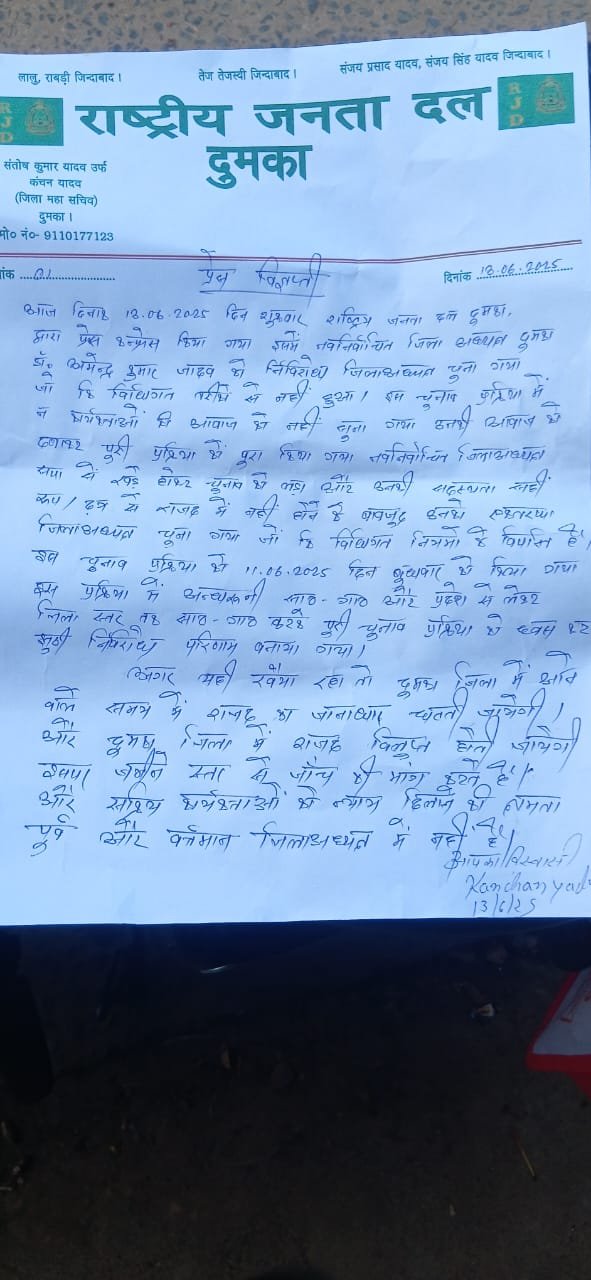 लालु, राबड़ी जिन्दाबाद।
तेज तेजस्वी जिन्दाबाद।
संजय प्रसाद यादव, संजय सिंह यादव जिन्दाबाद।
RJD
राष्ट्रीय जनता दल
RJD
दुमका
संतोष कुमार यादव उर्फ
कंचन यादव
(जिला महा सचिव)
दुमका।
मो० नं०- 9110177123
प्रेस विज्ञप्ती
ांक 01
दिनांक 13.06.2025
आज दिनांक 13.06.2025 दिन शुक्रवार राष्ट्रिय जनता दल दुमका,
द्वारा प्रेस किया गया इसमें नवनिर्वाचित जिला अध्यक्ष दुमका
डॉ० अमेन्द्र कुमार जादव को निर्विरोध जिलाअध्यक्ष चुना गया
जो कि विधिगत तरीके से नहीं हुआ। इस चुनाव प्रक्रिया में
न कार्यकर्ताओं कि आवाज को नहीं सुना गया उनकी आवाज को
दबाकर पुरी प्रक्रिया को पुरा किया गया नवनिर्वाचित जिलाअध्यक्ष
सपा से खड़े होकर चुनाव को लड़ा और उनकी सदस्यता सही
रूप से राजद में नहीं होने के बावजुद उनको
जिलाअध्यक्ष चुना गया जो कि विधिगत नियमो के है।
इस चुनाव प्रक्रिया को 11.06.2025 दिन बुधवार को किया गया
इस प्रक्रिया में साठ-गाठ और प्रदेश से लेकर
जिला स्तर तक साठ-गाठ करके पुरी चुनाव प्रक्रिया को ध्वस कर
झुठी निर्विरोध परिणाम बनाया गया।
अगर यही रवैया रहा तो दुमका जिला में आने
वाले समय में राजद का जानाधार घटती जायेगी।
और दुमका जिला में राजद विलुप्त होती जायेगी
स्तर से जाँच की मांग करते है।
और सक्रिय कार्यकर्ताओं को न्याय दिलाने की क्षमता
पुर्व और वर्तमान जिलाअध्यक्ष में नही है।
आपका विस्वासी
Kanchan Yad
13/6/25